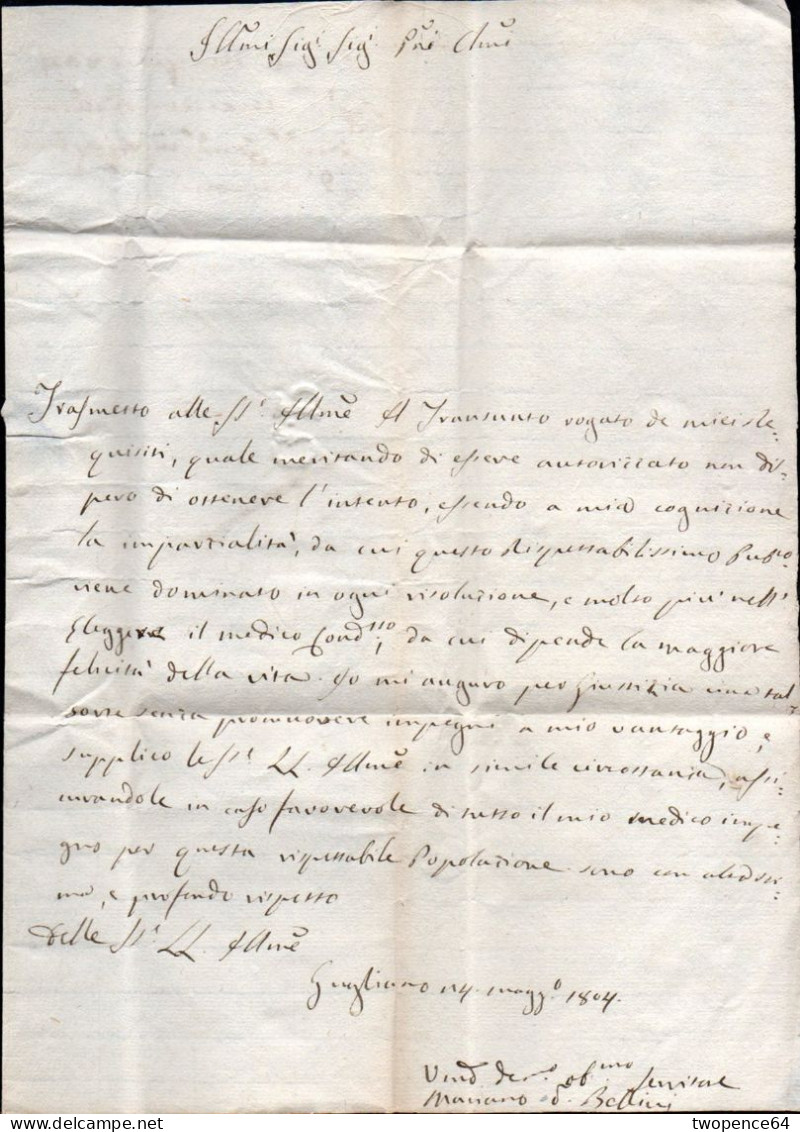 Illmi Sigri Sigri Pñi Olmi
Trasmetto alle SS.e Illmē il Transunto rogato de miei Re-
quisiti, quale meritando di essere autorizzato non dis-
pero di ottenere l'intento, essendo a mia cognizione
la imparzialità, da cui questo Rispettabilissimo Pub.co
viene dominato in ogni risoluzione, e molto più nell'
Eleggere il medico Cond.tto, da cui dipende la maggiore
felicità della vita. Io mi auguro per Giustizia una tal
sorte senza promuovere impegni a mio vantaggio, e
supplico le SS.e LL. Illmē in simile circostanza, assi-
curandole in caso favorevole di tutto il mio medico impe-
gno per questa rispettabile Popolazione sono con
ma, e profondo rispetto
Delle SS.e LL. Illmē
Gugliano 14 magg.o 1804.
Um̃o Dev.o obb.mo Servitore
Mariano D. Bellini
twopence64